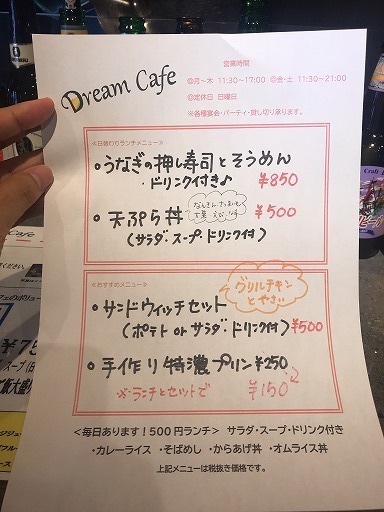 Dream Cafe
営業時間
◎月～木 11:30～17:00 ◎金・土 11:30～21:00
◎定休日 日曜日
※各種宴会・パーティ・貸し切り承ります。
≪日替わりランチメニュー≫
・うなぎの押し寿司とそうめん
・ドリンク付き♪ ¥850
・天ぷら丼 ¥500
なんきん さつまいも
大葉 えび
(サラダ・スープ・ドリンク付)
≪おすすめメニュー≫
グリルチキン
とやさい
・サンドウィッチセット
(ポテト or サラダ・ドリンク付) ¥500
・手作り特濃プリン ¥250
※ランチとセットで ¥150
<毎日あります！500円ランチ> サラダ・スープ・ドリンク付き
・カレーライス ・そばめし ・からあげ丼 ・オムライス丼
上記メニューは税抜き価格です。